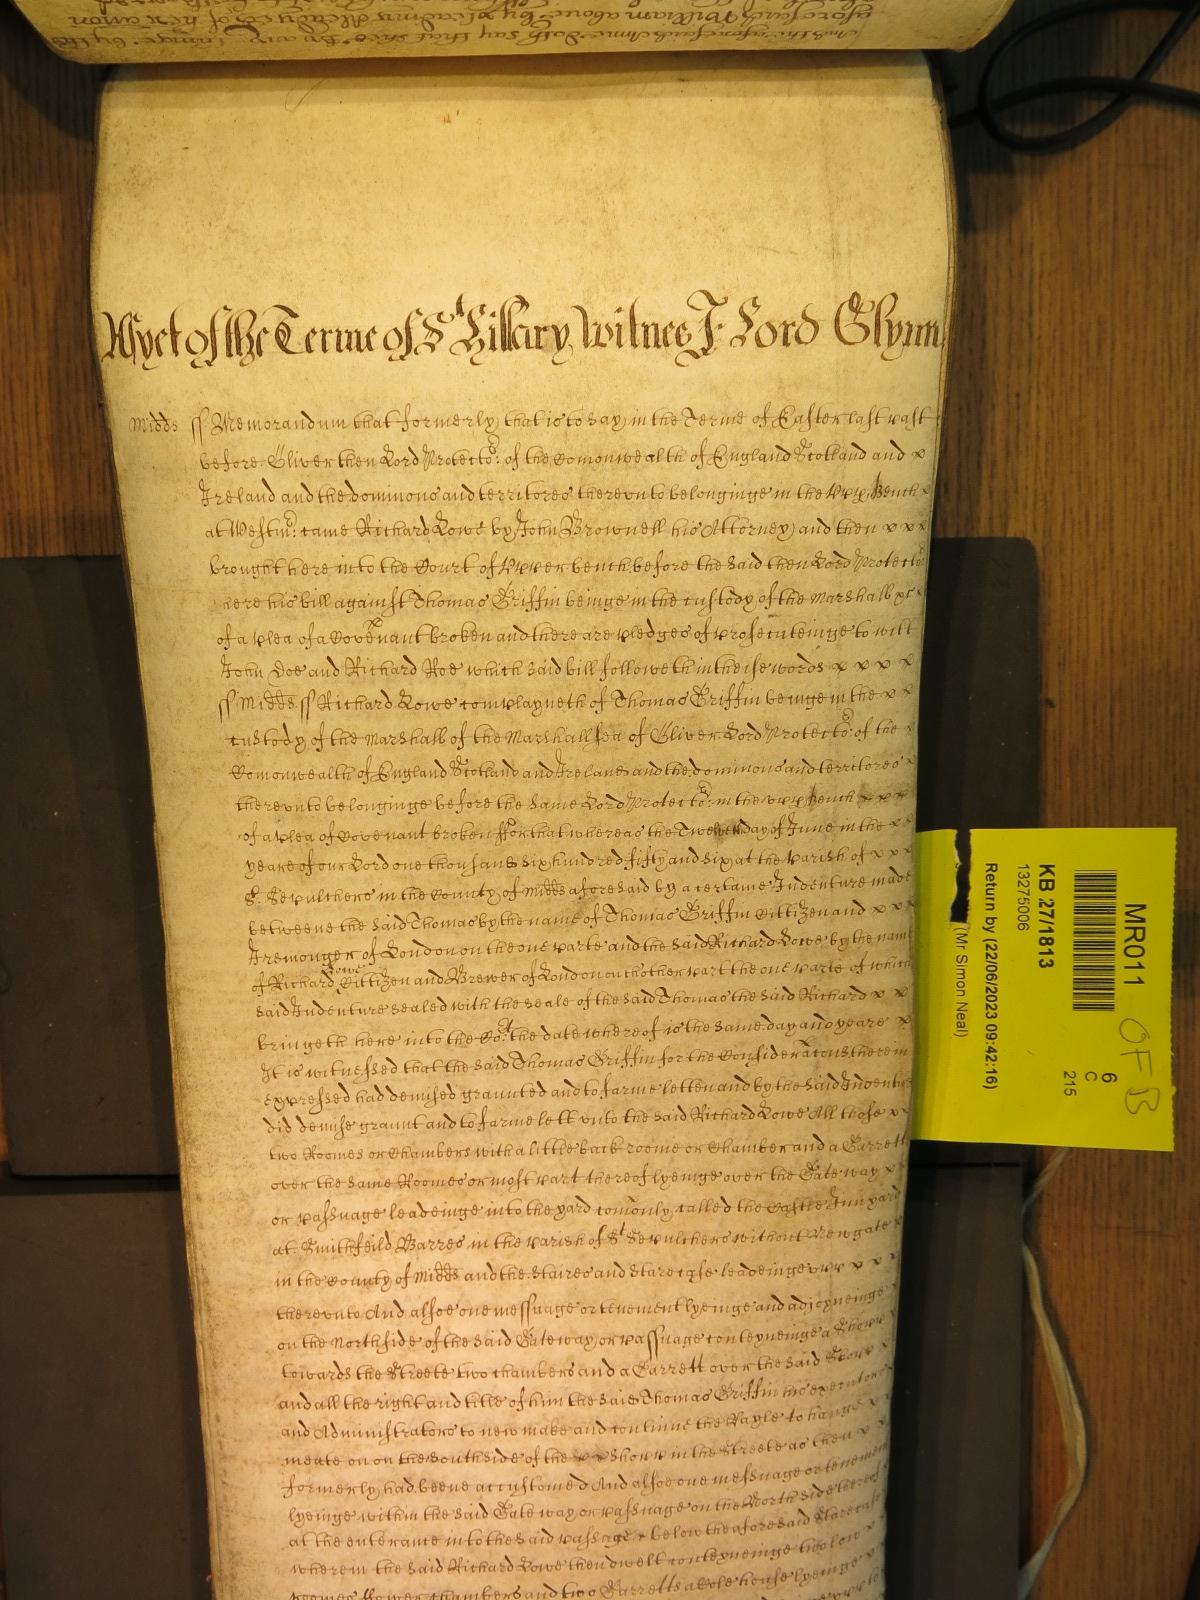 And the aforesaid Anne doth say that shee by any thinge by the
aforesaid William above by pleadinge alleadged of her accon
As yet of the Terme of St Hillary Witnes J Lord Glynn
Midds ss Memorandum that formerly that is to say in the Terme of Easter last past
before Oliver then Lord Protector of the Comonwealth of England Scotland and x
Ireland and the dominions and territores thereunto belonginge in the upp bench x
at Westmr came Richard Lowe by John Brownell his Attorney and then x x x
brought here into the Court of upper bench before the said then Lord Protector
here his bill against Thomas Griffin beinge in the custody of the Marshall &c x
of a plea of a Covenant broken and there are pledges of prosecuteinge to witt
John Doe and Richard Roe which said bill followeth in theise words x x x x
ss Midds ss Richard Lowe complayneth of Thomas Griffin beinge in the x x
custody of the Marshall of the Marshallsea of Oliver Lord Protector of the x
Comonwealth of England Scotland and Ireland and the dominions and territores x
thereunto belonginge before the same Lord Protector in the upp bench x x x
of a plea of Covenant broken ffor that whereas the Twelveth day of June in the x
yeare of our Lord one thousand six hundred fifty and six at the Parish of x x x
St Sepulchers in the County of Midds aforesaid by a certaine Indenture made
betweene the said Thomas by the name of Thomas Griffin Cittizen and x x x
Iremonger of London on the one parte and the said Richard Lowe by the name
of Richard Lowe Cittizen and Brewer of London on thother part the one parte of which
said Indenture sealed with the seale of the said Thomas the said Richard x x
bringeth here into the Cort the date whereof is the same day and yeare x
It is witnessed that the said Thomas Griffin for the Consideracons therein
expressed had demised graunted and to farme letten and by the said Indenture
did demise graunt and to farme lett unto the said Richard Lowe All those x x
two Roomes or Chambers with a little back roome or Chamber and a Garrett
over the same Roomes or most part thereof lyeinge over the Gate way x x
or passuage leadeinge into the yard comonly called the Castle Inn yard
at Smithfeild Barres in the parish of St Sepulchers without Newgate x
in the County of Midds and the Staires and Starecase leadeinge upp x x x
thereunto And alsoe one messuage or tenement lyeinge and adjoyneinge
on the North side of the said Gateway or passuage conteyneinge a Shopp
towards the Streete two chambers and a Garrett over the said Shopp x
and all the right and title of him the said Thomas Griffin his executors
and Administrators to new make and continue the Rayle to hange x x
meate on on the South side of the x x Shopp in the Streete as then x x
formerly had beene accustomed And alsoe one messuage or tenement
lyeinge within the said Gate way or passuage on the North side thereof
at the entrance into the said passage x below the aforesaid Starecase
wherein the said Richard Lowe then dwelt conteyneinge two low x x
roomes fower chambers and two Garretts a Cole house lyeinge x x
MR011 OFB
6
C
215
KB 27/1813
13275006
Return by (22/06/2023 09:42:16)
(Mr Simon Neal)